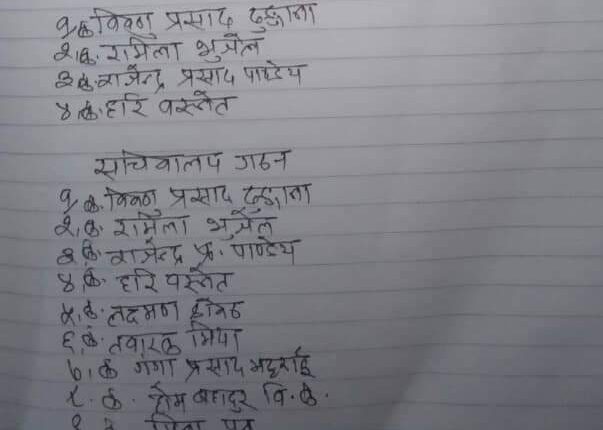 १, क. विष्णु प्रसाद ढुङ्गाना
२, क. रामिला भुजेल
३, क. राजेन्द्र प्रसाद पाण्डेय
४, क. हरि वस्नेत
सचिवालय गठन
१, क. विष्णु प्रसाद ढुङ्गाना
२, क. रामिला भुजेल
३, क. राजेन्द्र प्र. पाण्डेय
४, क. हरि वस्नेत
५, क. लक्ष्मण
६, क. तवारक मिया
७, क. गंगा प्रसाद भट्टराई
८. क. होम बहादुर वि. क.